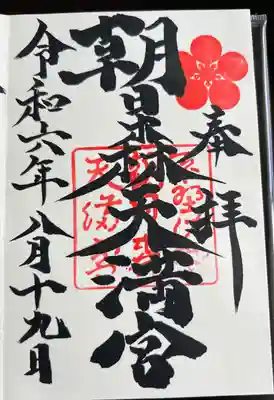 奉拝
朝日森天満宮
令和六年八月十九日